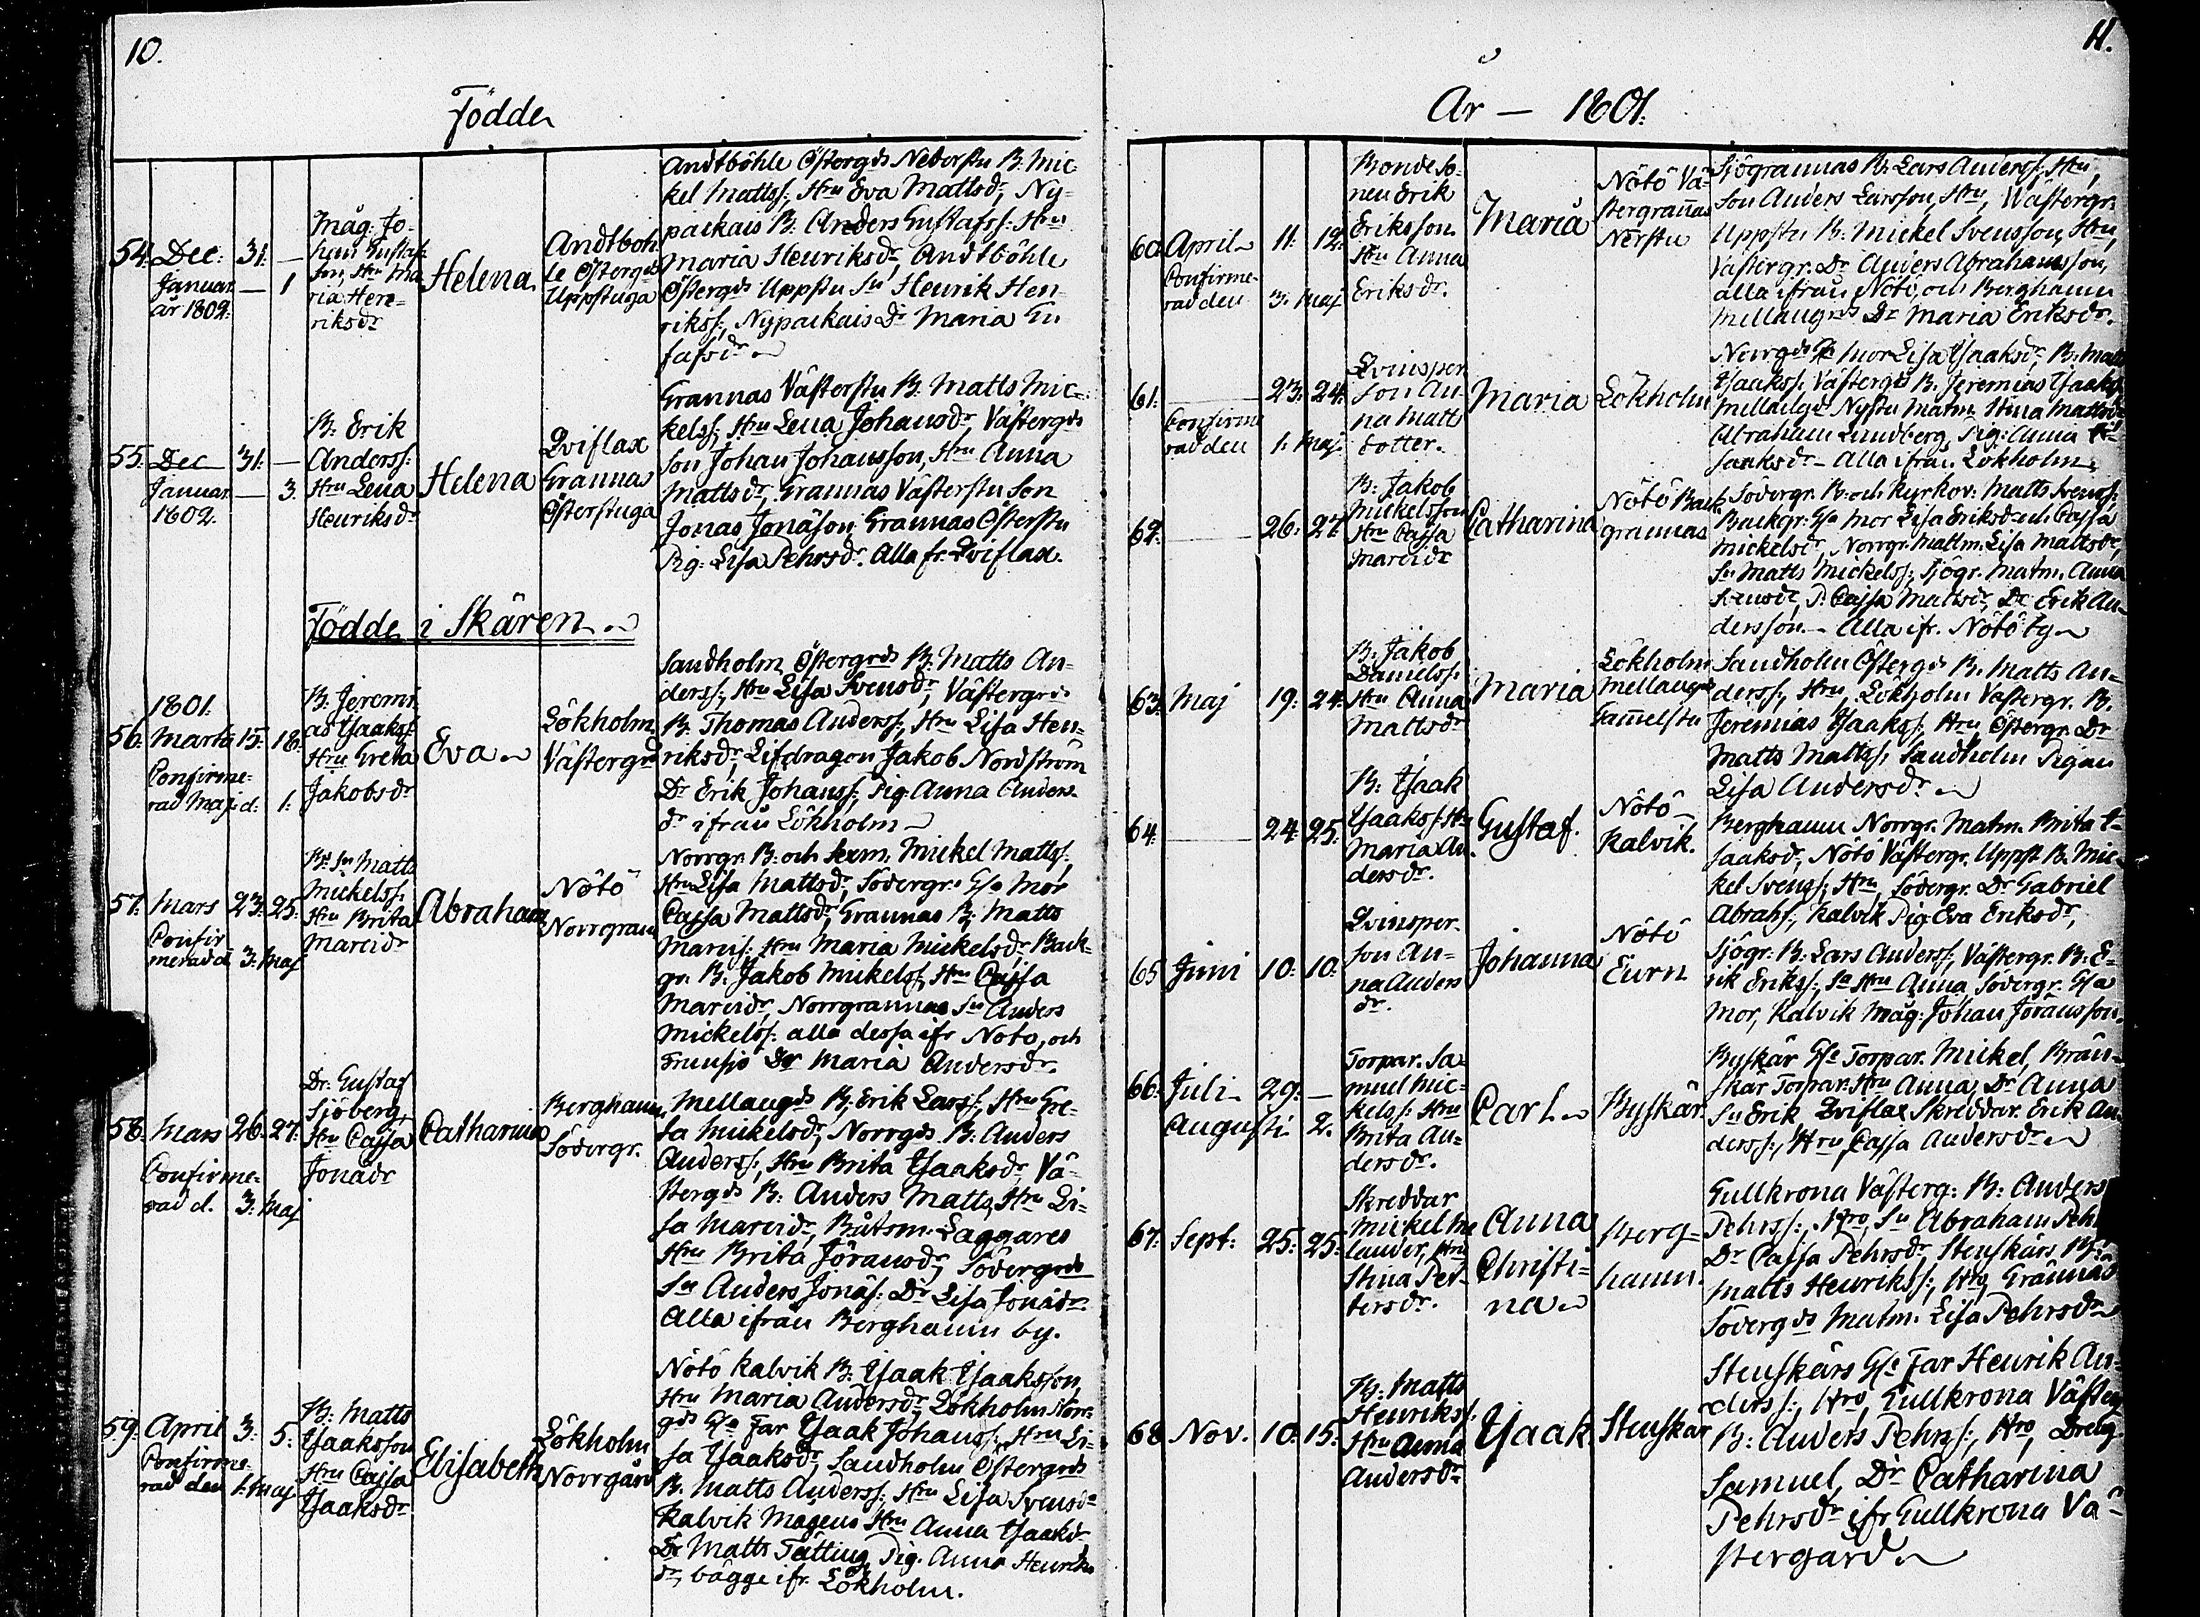 10.
Födde
54. Dec: 31. —
Januar. — 1
år 1802.
Måg. Jo-
han Gustaf-
son, Hru Ma
ria Hen-
riksdr
Helena
Andtböh
le Östergds
Uppstuga
Andtböhle Östergds Nederstu B: Mic-
kel Mattss: Hru Eva Mattsdr, Ny-
paikais B: Anders Gustafss: Hru
Maria Henriksdr, Andtböhle
Östergds Uppstu Sn Henrik Hen-
rikss:, Nypaikais Dr Maria Gu
stafsdr
55. Dec 31. —
Januar. — 3.
1802.
B: Erik
Anderss:
Hru Lena
Henriksdr
Helena
Qviflax
Granna
Österstuga
Grannas Västerstu B: Matts Mic-
kelss: Hru Lena Johansdr, Västergds
Son Johan Johansson, Hru Anna
Mattsdr, Grannas Västerstu Son
Jonas Jonäson, Grannas Österstu
Pig: Lisa Pehrsdr. Alla fr. Qviflax.
Födde i Skären
1801.
56. Marti 15. 18.
Confirme-
rad Maj d. 1.
B: Jeremi
as Isaakss:
Hru Greta
Jakobsdr
Eva
Lökholm
Västergrd
Sandholm Östergrds B: Matts An-
derss:, Hru Lisa Svensdr, Västergrds
B: Thomas Anderss:, Hru Lisa Hen-
riksdr, Lifdragon Jakob Nordström
Dr Erik Johanss:, Pig Anna Anders-
dr ifrån Lökholm
57. Mars 23. 25.
Confir
merad d 3. Maj
Bs Sn Matts
Mickelss:
Hru Brita
Marcidr
Abraham
Nötö
Norrgran
Norrgr. B: och Sexm. Mickel Mattss:,
Hru Lisa Mattsdr, Södergr. Gla Mor
Cajsa Mattsdr, Grannas B: Matts
Marcis: Hru Maria Mickelsdr, Back-
gr. B: Jakob Mickelss, Hru Cajsa
Marcidr, Norrgrannas Sn Anders
Mickelss: alla dessa ifr Nötö, och
Trunsjö Dr Maria Andersdr.
58. Mars 26. 27.
Confirme-
rad d. 3. Maj
Dr. Gustaf
Sjöberg,
Hru Cajsa
Jonädr
Catharina
Berghamn
Södergr.
Mellangds B: Erik Larss:, Hru Gre-
ta Mickelsdr, Norrgds B: Anders
Anderss:, Hru Brita Isaaksdr, Vä-
stergds B: Anders Matts, Hru Li-
sa Marcidr, Båtsm. Laggares
Hru Brita Jöransdr, Södergrds
Sn Anders Jonäs: Dr Lisa Jonädr.
Alla ifrån Berghamn by.
59. April 3. 5.
Confirme-
rad den 1. Maj
B: Matts
Isaaksson
Hru Cajsa
Isaaksdr
Elisabeth
Lökholm
Norrgård
Nötö Kalvik B: Isaak Isaaksson
Hru Maria Andersdr, Lökholm Norr-
gds Gla Far Isaak Johanss:, Hru Li-
sa Isaaksdr, Sandholm Östergrds
B: Matts Anderss:, Hru Lisa Svensdr
Kalvik Mågens Hru Anna Isaaksdr
Dr Matts Tätting, Pig. Anna Henriks
dr, bägge ifr. Lökholm.
11.
År — 1801.
60. April 11. 12.
Confirme-
rad den 3. Maj
Bondeso-
nen Erik
Eriksson
Hru Anna
Eriksdr.
Maria
Nötö Vä-
stergrannas
Nerstu
Sjögrannas B: Lars Anderss:, Hru,
Son Anders Larsson, Hru, Västergr.
Uppstu B: Mickel Svensson, Hru,
Västergr. Dr Anders Abrahamsson,
alla ifrån Nötö, och Berghamn
Mellangrds Dr Maria Eriksdr.
61. — 23. 24.
Confirme
rad den 1. Maj.
Qvinsper
son An-
na Matts
dotter.
Maria
Lökholm
Norrgds Gla Mor Lisa Isaaksdr, B: Matts
Isaakss: Västergds B: Jeremias Isaakss:
Mellangds Nystu Matm. Stina Mattsdr
Abraham Lundberg, Pig: Anna I-
saaksdr — Alla ifrån Lökholm.
62. — 26. 27.
B: Jakob
Mickelsson
Hru Cajsa
Marcidr
Catharina
Nötö Back
grannas
Södergr. B: och Kyrkov: Matts Svenss:
Backgr: Gla Mor Lisa Eriksdr och Cajsa
Mickelsdr, Norrgr. Mattm. Lisa Mattsdr,
Sn Matts Mickelss:, Sjögr. Matm. Anna
Svensdr, P. Cajsa Mattsdr, Dr Erik An-
dersson. — Alla ifr. Nötö by
63. Maj 19. 24.
B: Jakob
Danielss:
Hru Anna
Mattsdr
Maria
Lökholm
Mellangds
Gammelstu
Sandholm Östergds B: Matts An-
derss:, Hru, Lökholm Västergr. B.
Jeremias Isaakss:, Hru, Östergr. Dr
Matts Mattss: Sandholm Pigan
Lisa Andersdr
64. — 24. 25.
B: Isaak
Isaakss: Hru
Maria An-
dersdr.
Gustaf.
Nötö
Kalvik.
Berghamn Norrgr. Matm. Brita I-
saaksdr, Nötö Västergr. Uppst B: Mic-
kel Svenss:, Hru, Södergr. Dr Gabriel
Abrahs:, Kalvik Pig Eva Eriksdr,
65 Juni 10. 10.
Qvinsper-
son An-
na Anders
dr.
Johanna
Nötö
Eurn
Sjögr. B: Lars Anderss:, Västergr. B: E-
rik Erikss:, Sa Hru Anna, Södergr. Gla
Mor, Kalvik Måg: Johan Jöransson.
66. Juli 29. —
Augusti 2.
Torpar. Sa-
muel Mic-
kelss: Hru
Brita An-
dersdr.
Carl
Byskär.
Byskär Gle Torpar. Mickel, Brän-
skär Torpar. Hru Anna, Dr Anna
Sn Erik Qviflax Skreddar. Erik An
derss:, Hru Cajsa Andersdr
67. Sept: 25. 25.
Skreddar
Mickel Me
lander, Hru
Stina Pet-
tersdr.
Anna
Christi-
na
Berg-
hamn.
Gullkrona Västerg: B: Anders
Pehrss:, Hro, Sn Abraham Pehr
Dr Cajsa Pehrsdr, Stenskärs B:
Matts Henrikss:, Hro, Grännäs
Södergds Matm. Lisa Pehrsdr
68 Nov. 10. 15.
B: Matts
Henrikss:
Hru Anna
Andersdr
Isaak
Stenskär
Stenskärs Gle Far Henrik An-
derss:, Hro, Gullkrona Västerg
B: Anders Pehrss:, Hro, Dreng
Samuel, Dr Catharina
Pehrsdr ifr Gullkrona Vä-
stergård